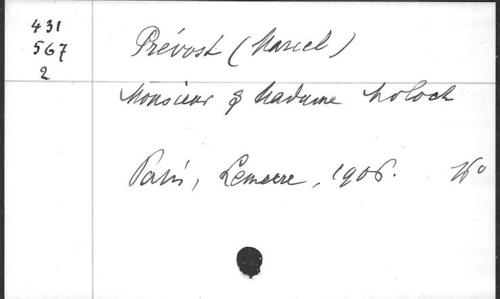 431
567
2
Prévost (Marcel)
Monsieur & Madame Moloch
Paris, Lemerre, 1906.